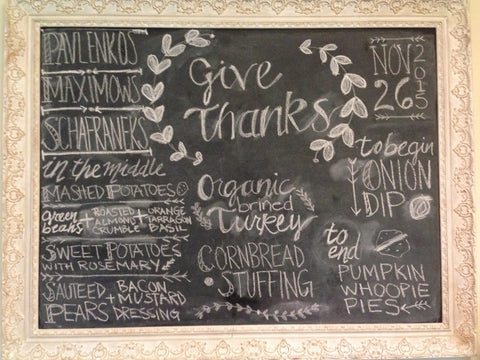 PAVLENKOS
MAXIMOWS
SCHAFRANEKS
Give
Thanks
NOV
26
2015
in the middle
MASHED POTATOES
green beans + ROASTED ALMOND CRUMBLE + ORANGE TARRAGON BASIL
SWEET POTATOES
WITH ROSEMARY
SAUTEED PEARS + BACON MUSTARD DRESSING
Organic
brined
Turkey
CORNBREAD
STUFFING
to begin
ONION
DIP
to
end
PUMPKIN
WHOOPIE
PIES